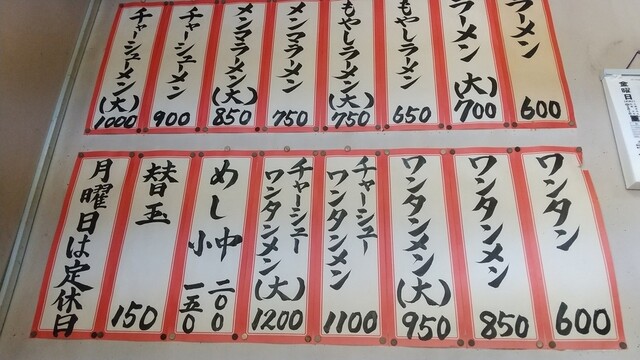 ラーメン 600
ラーメン(大) 700
もやしラーメン 650
もやしラーメン(大) 750
メンマラーメン 750
メンマラーメン(大) 850
チャーシューメン 900
チャーシューメン(大) 1000
ワンタン 600
ワンタンメン 850
ワンタンメン(大) 950
チャーシュー
ワンタンメン 1100
チャーシュー
ワンタンメン(大) 1200
めし中 二〇〇
小 一五〇
替玉 150
月曜日は定休日
金曜日